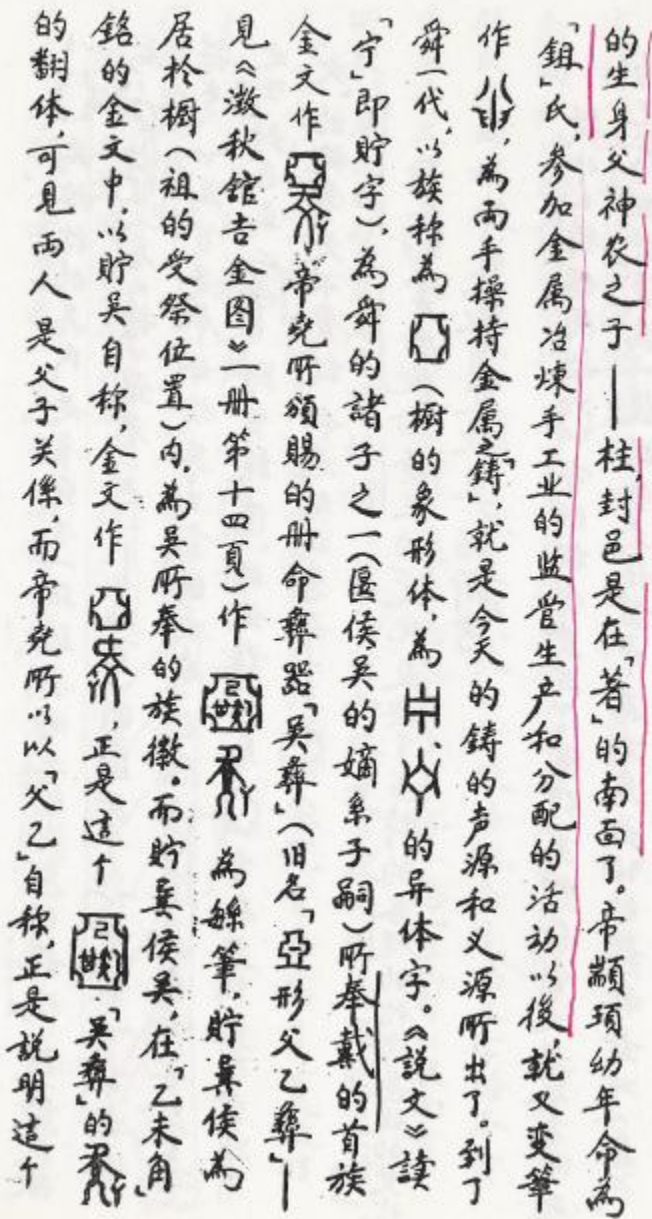 的生身父神农之子——柱,封邑是在「著」的南面了。帝顓頊幼年命為
「鉏」氏,参加金属冶煉手工业的监管生产和分配的活动以後,就又变筆
作,為两手操持金属之「鋳」,就是今天的鋳的声源和义源所出了。到了
舜一代,以族称為(櫥的象形体,為的异体字。《說文》讀
「宁」即貯字),為舜的諸子之一(匽侯吴的嫡系子嗣)所奉戴的首族
金文作帝尭所頒賜的册命彝器「吴彝」(旧名「亞形父乙彝」—
見《澂秋館吉金图》一册第十四頁)作為緐筆,貯㠱侯為
居於櫥(祖的受祭位置)内,為吴所奉的族徽。而貯㠱侯吴,在「乙未角」
銘的金文中,以貯吴自称,金文作,正是這个「吴彝」的
的翻体,可見两人是父子关係,而帝尭所以以「父乙」自称,正是説明這个